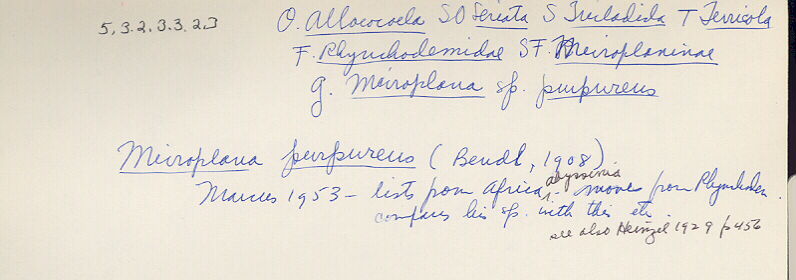 5.3.2.3.3.2.3
O. Allococoela SO Seriata S Tricladida T Terricola
F. Rhynchodemidae SF. Meiroplaninae
g. Meiroplana sp. purpureus
Meiroplana purpureus (Bendl, 1908)
abyssinia
Marcus 1953 - lists from Africa, moves from Rhynchodem.
compares his sp. with this etc.
see also Heinzel 1929 p456